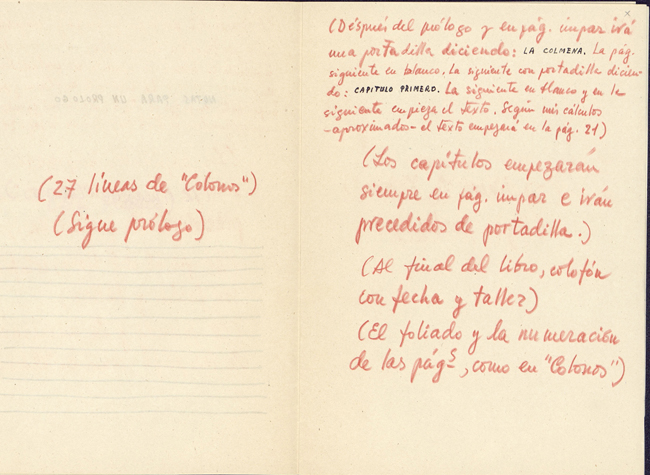 (27 líneas de "Colonos")
(Sigue prólogo)
(Después del prólogo y en pág. impar irá
una portadilla diciendo: LA COLMENA. La pág.
siguiente en blanco. La siguiente con portadilla dicien-
do: CAPITULO PRIMERO. La siguiente en blanco y en la
siguiente empieza el texto. Según mis cálculos
-aproximados- el texto empezará en la pág. 21)
(Los capítulos empezarán
siempre en pág. impar e irán
precedidos de portadilla.)
(Al final del libro, colofón
con fecha y taller)
(El foliado y la numeración
de las págs, como en "Colonos")